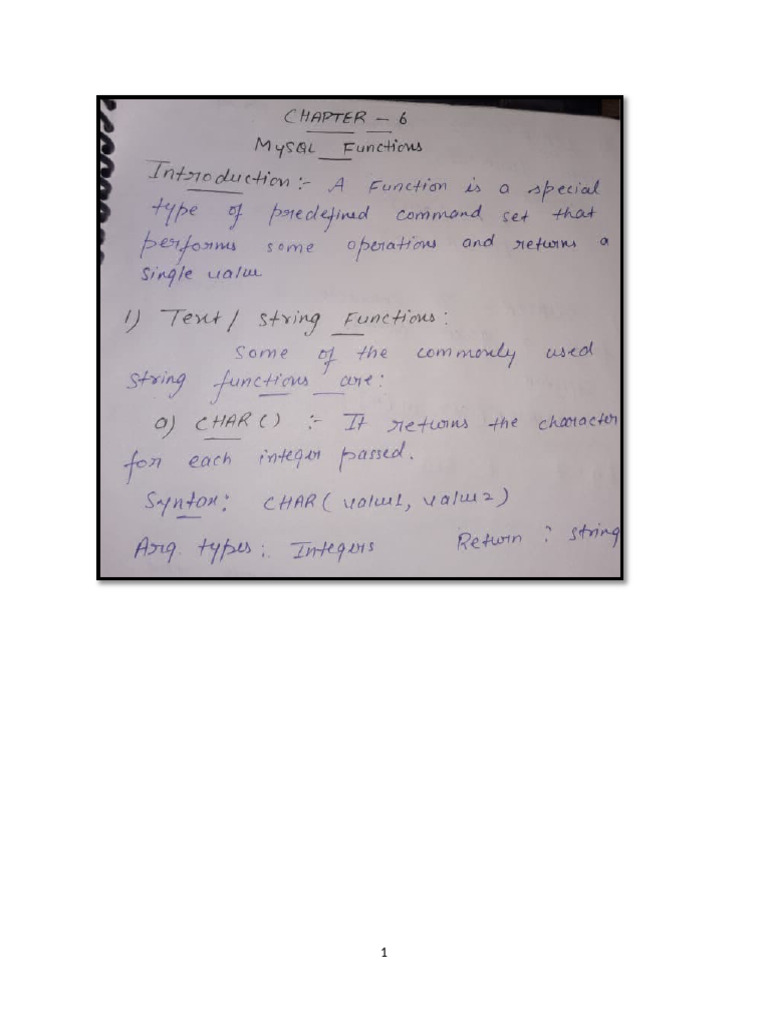 CHAPTER - 6
MySQL Functions
Introduction :- A Function is a special
type of predefined command set that
performs some operations and returns a
single value
1) Text / string Functions:
Some of the commonly used
string functions are:
a) CHAR() :- It returns the character
for each integer passed.
Syntax: CHAR( value1, value2)
Arg. types: Integers Return : string
1